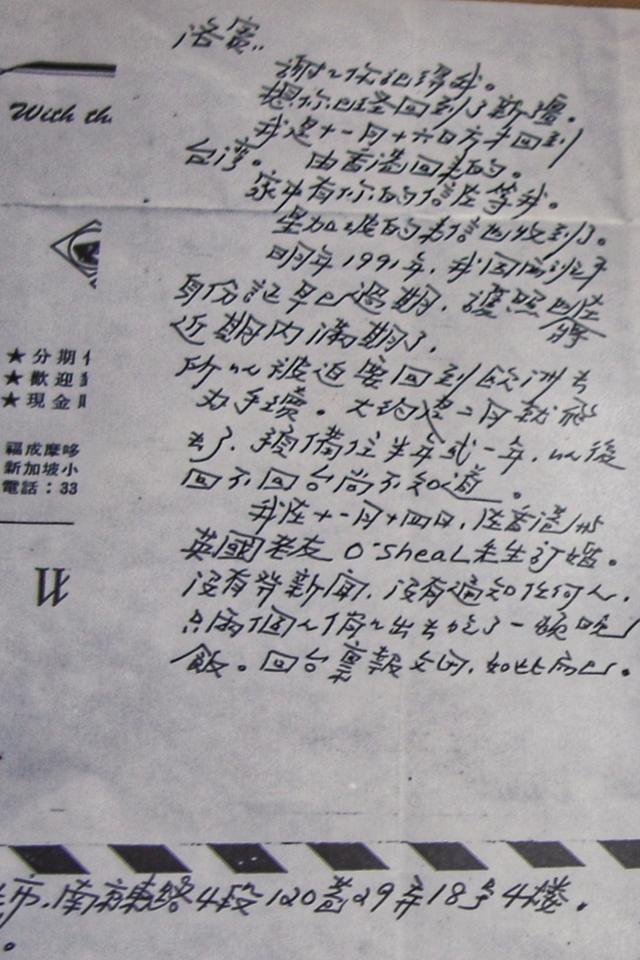 洛賓：
謝謝你記得我。
想你已經回到了新疆。
我是十一月十六日方才回到
台灣。由香港回來的。
家中有你的信在等我。
星加坡的来信也收到了。
明年1991年，我因西班牙
身份証早已過期，護照也在
將
近期内滿期了，
所以被迫要回到欧洲去
办手續。大約是二月就飛
去了，預備住半年或一年，以後
回不回台尚不知道。
我在十一月十四日，在香港與
英國老友 O'sheaL先生訂婚。
没有發新闻，没有通知任何人，
只兩個人偷偷出去吃了一頓晚
飯。回台稟報父母，如此而已。
With th
★分期
★歡迎
★現金
福成摩哆
新加坡小
電話：33
市，南京東路4段120巷29弄18号4楼。